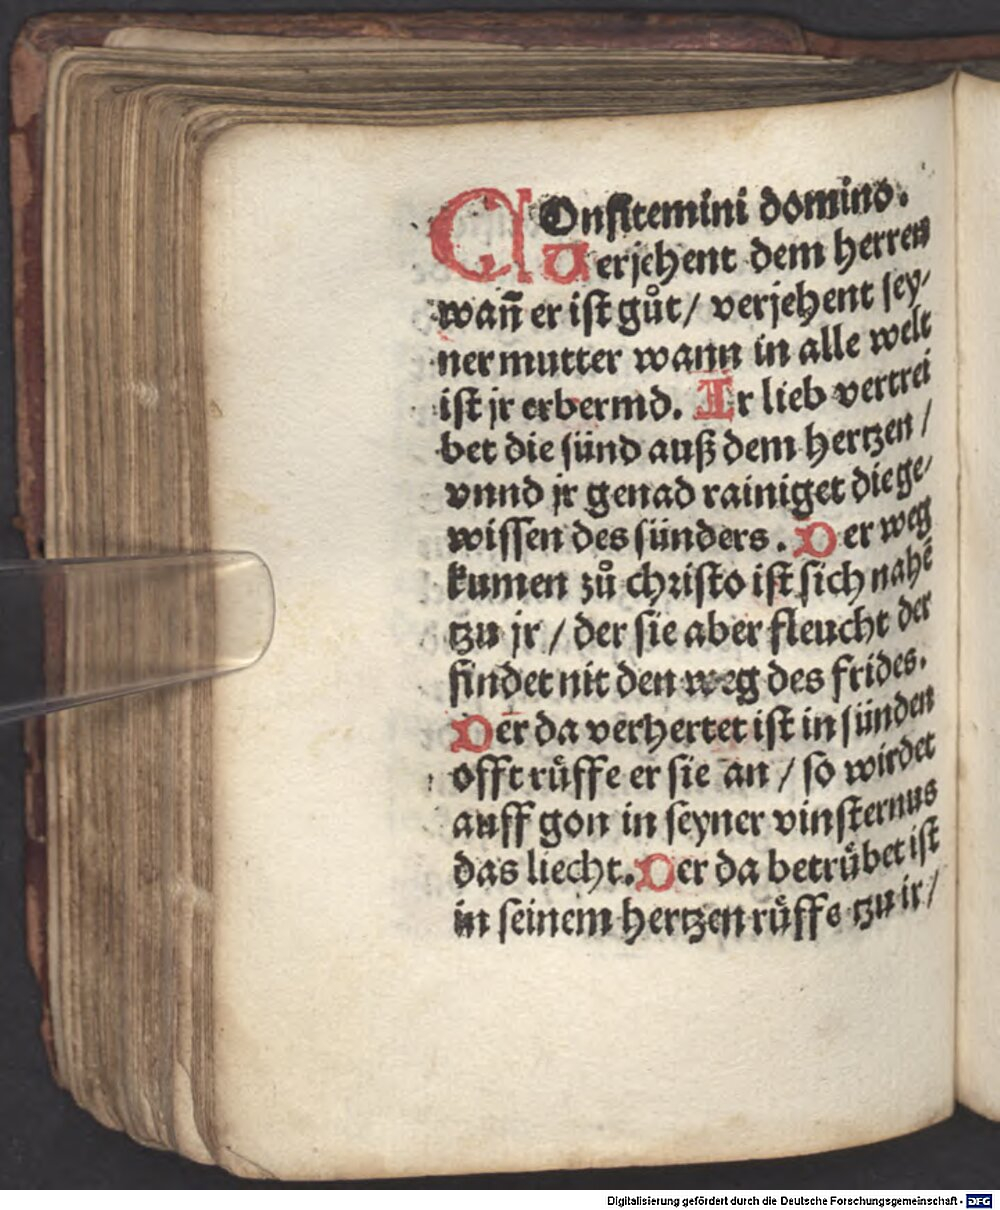 COnfitemini domino.
Verjehent dem herren
wañ er ist gůt / verjehent sey⸗
ner mutter wann in alle welt
ist jr erbermd. Ir lieb vertrei
bet die sünd auß dem hertzen /
vnnd jr genad rainiget die ge⸗
wissen des sünders. Der weg
kumen zů christo ist sich nahē
tzu jr / der sie aber fleucht der
findet nit den weg des frides.
Der da verhertet ist in sünden
offt růffe er sie an / so wirdet
auff gon in seyner vinsternus
das liecht. Der da betrůbet ist
in seinem hertzen růffe tzu ir /
Digitalisierung gefördert durch die Deutsche Forschungsgemeinschaft - DFG